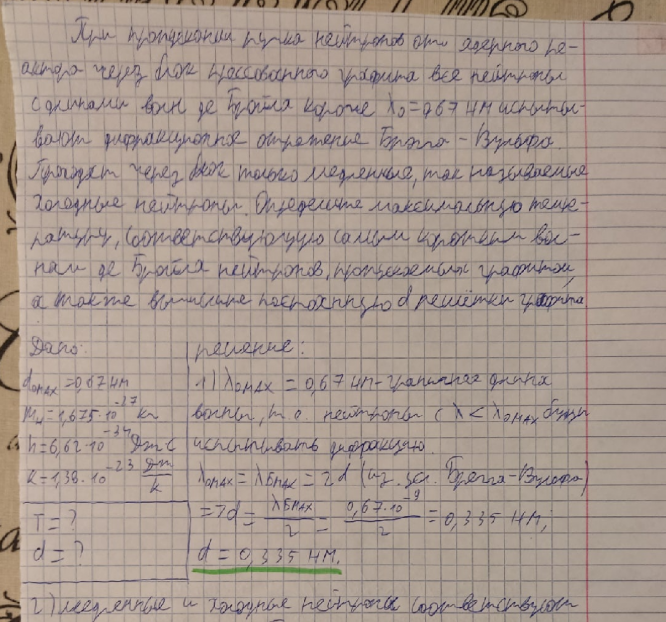 При пропускании пучка нейтронов от ядерного ре-
актора через блок прессованного графита все нейтроны
с длинами волн де Бройля короче λ₀=0,67 нм испыты-
вают дифракционное отражение Брэгга-Вульфа.
Проходят через блок только медленные, так называемые
холодные нейтроны. Определите максимальную темпе-
ратуру, соответствующую самым коротким вол-
нам де Бройля нейтронов, пропускаемых графитом,
а также вычислите постоянную d решётки графита
Дано:
λ₀max = 0,67 нм
mн = 1,675·10⁻²⁷ кг
h = 6,62·10⁻³⁴ Дж·с
k = 1,38·10⁻²³ Дж/k
T = ?
d = ?
решение:
1) λ₀max = 0,67 нм - граничная длина
волны, т.е. нейтроны с λ < λ₀max будут
испытывать дифракцию.
λ₀max = λБmax = 2d (из Брэгга-Вульфа)
=> d = λБmax/2 = 0,67·10⁻⁹/2 = 0,335 нм;
d = 0,335 нм.
2) медленные и холодные нейтроны соответствуют